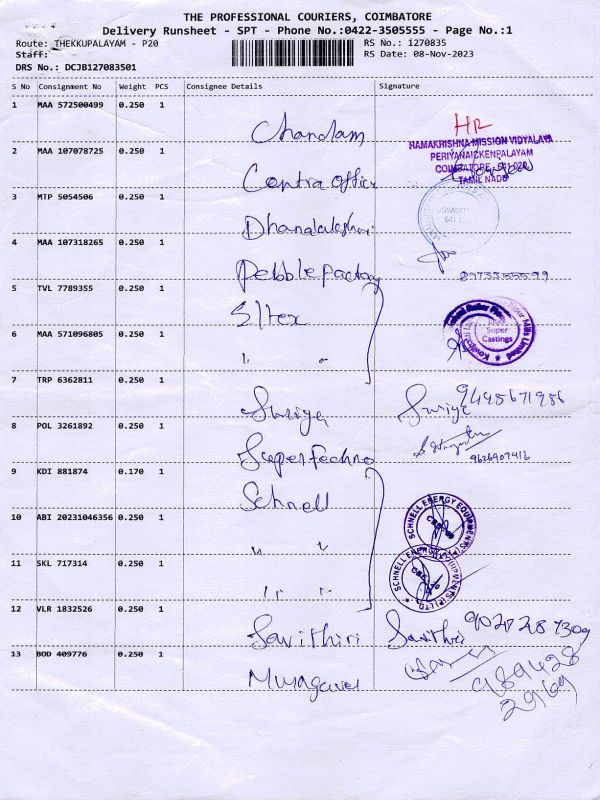 THE PROFESSIONAL COURIERS, COIMBATORE
Delivery Runsheet - SPT - Phone No.:0422-3505555 - Page No.:1
Route: THEKKUPALAYAM - P20
RS No.: 1270835
Staff:
RS Date: 08-Nov-2023
DRS No.: DCJB127083501
S No Consignment No Weight PCS Consignee Details Signature
1 MAA 572500499 0.250 1 Chandam
HR
RAMAKRISHNA MISSION VIDYALAYA
PERIYANAICKENPALAYAM
COIMBATORE - 641 020
TAMIL NADU
2 MAA 107078725 0.250 1 Contra office
3 MTP 5054506 0.250 1
4 MAA 107318265 0.250 1 Pebble factory
5 TVL 7789355 0.250 1 Eltex
Super
Castings
6 MAA 571096805 0.250 1 " "
7 TRP 6362811 0.250 1 Suriya Suriya 9448671986
8 POL 3261892 0.250 1 Super Techno 9626907416
9 KDI 881874 0.170 1 Schnell
SCHNELL ENERGY EQUIPMENTS (P) LTD
10 ABI 20231046356 0.250 1 " "
11 SKL 717314 0.250 1 " "
SCHNELL ENERGY EQUIPMENTS (P) LTD
12 VLR 1832526 0.250 1 Savithiri Savithri
13 BOD 409776 0.250 1 Murugavel
989428
2969